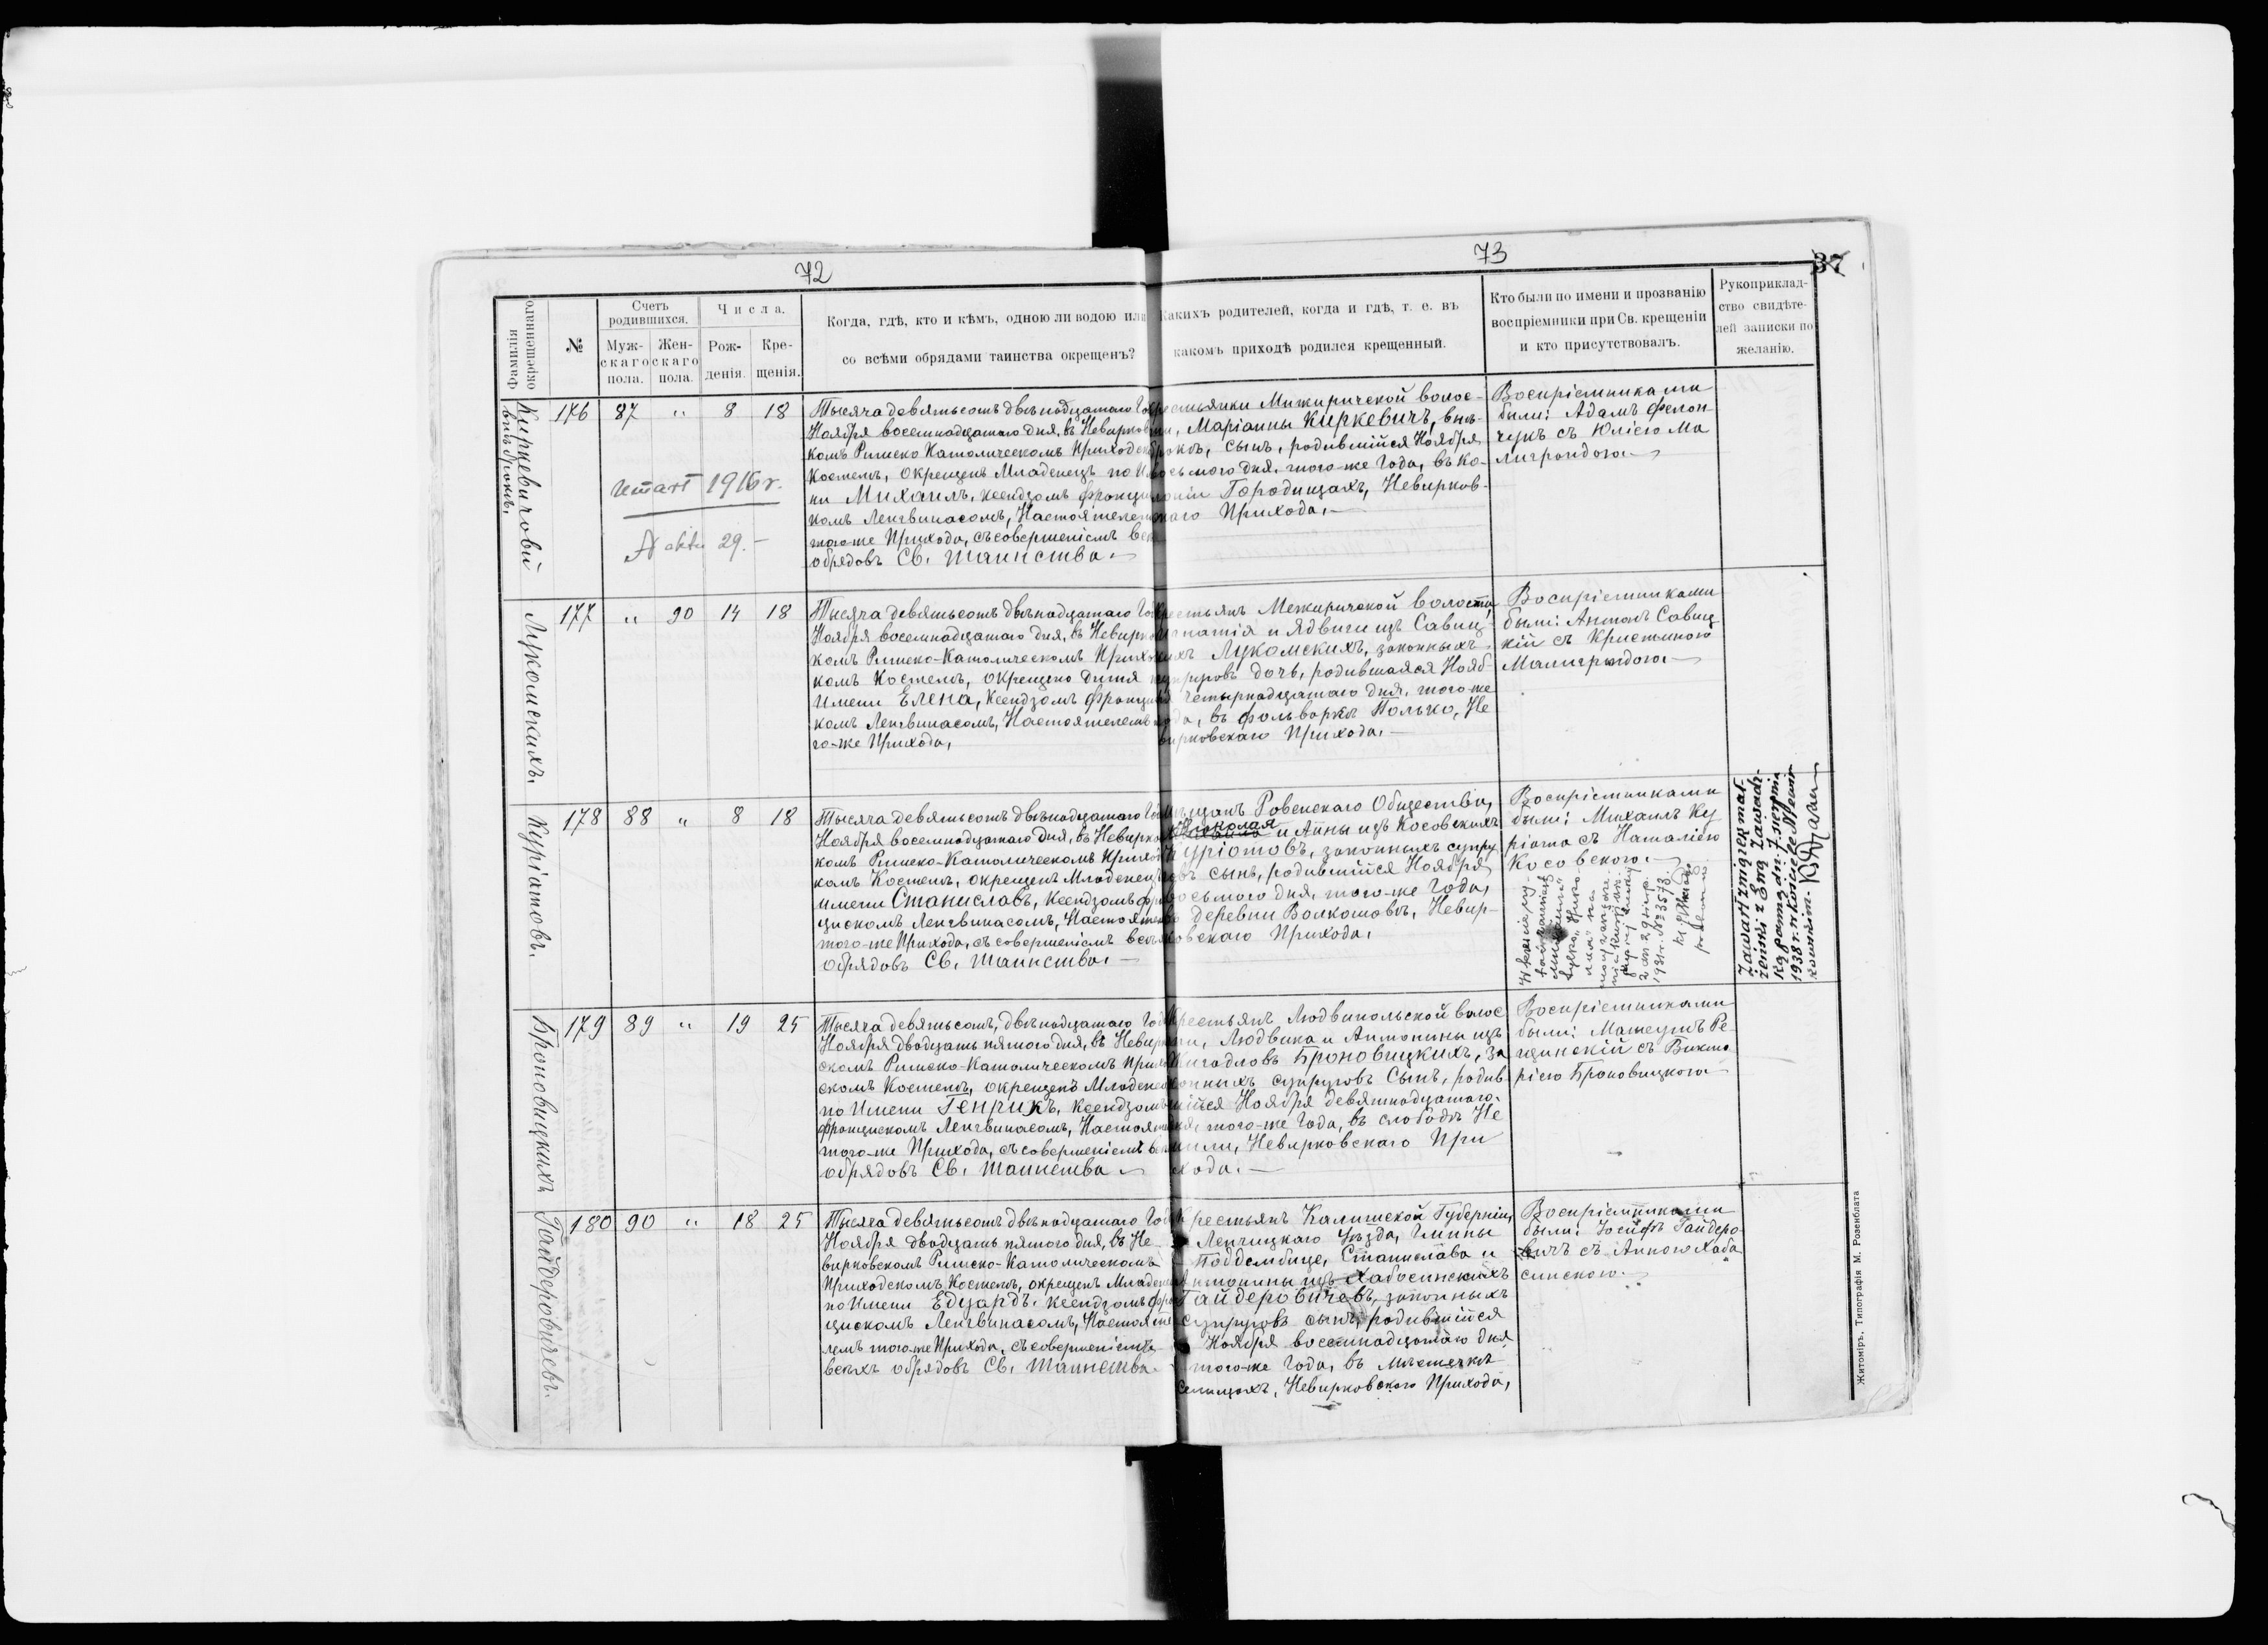 72
73
37
Фамилія
окрещеннаго.
№
Счетъ
родившихся.
Муж-
скаго
пола.
Жен-
скаго
пола.
Числа.
Рож-
денія.
Кре-
щенія.
Когда, гдѣ, кто и кѣмъ, одною ли водою или
со всѣми обрядами таинства окрещенъ?
Какихъ родителей, когда и гдѣ, т. е. въ
какомъ приходѣ родился крещенный.
Кто были по имени и прозванію
воспріемники при Св. крещеніи
и кто присутствовалъ.
Рукоприклад-
ство свидѣте-
лей записки по
желанію.
Киркевичовій
внѣброкъ,
176 87 " 8 18
Тысяча девятьсотъ двѣнадцатаго Го
Ноября восемнадцатаго дня, въ Невирков
комъ Римско Католическомъ Приходс
Костелѣ, окрещенъ Младенецъ по И
ни Михаилъ, Ксендзомъ Францис
комъ Ленгвинасомъ, Настоятелемъ
того-же Прихода, съ совершеніемъ всѣ
обрядовъ Св. Таинства.
umarł 1916 r.
N aktu 29.-
крестьянки Межиричской волос-
ти, Маріанны Киркевичъ, внѣ-
брокъ, сынъ, родившійся Ноября
восьмого дня, того-же Года, въ Ко-
лоніи Городищахъ, Невирков-
скаго Прихода,
Воспріемниками
были: Адамъ Фелон-
чукъ съ Юліею Ма
лиграндою.
Лукомскихъ.
177 " 90 14 18
Тысяча девятьсотъ двѣнадцатаго Го
Ноября восемнадцатаго дня, въ Невирко
комъ Римско-Католическомъ Прихо
комъ Костелѣ, окрещено дитя
имени Елена, Ксендзомъ Францис
комъ Ленгвинасомъ, Настоятелемъ
го-же Прихода,
крестьянъ Межиричской волости,
Игнатія и Ядвиги изъ Савиц
кихъ Лукомскихъ, законныхъ
супруговъ дочь, родившаяся Нояб-
ря четырнадцатаго дня, того-же
года, въ фольваркѣ Полько, Не
вирковскаго Прихода.
Воспріемниками
были: Антонъ Савиц
кій съ Кристиною
Малиграндою.
Куріатовъ.
178 88 " 8 18
Тысяча девятьсотъ двѣнадцатаго Го
Ноября восемнадцатаго дня, въ Невирко
комъ Римско-Католическомъ Прихо
комъ Костелѣ, окрещенъ Младенецъ
имени Станиславъ, Ксендзомъ Фра
цискомъ Ленгвинасомъ, Настояте
того-же Прихода, съ совершеніемъ всѣх
обрядовъ Св. Таинства.
Мѣщанъ Ровенскаго Общества,
Николая и Анны изъ Косовскихъ
Куріатовъ, законныхъ супру
говъ сынъ, родившійся Ноября
восьмого дня, того-же Года,
въ деревни Волкошовѣ, Невир-
ковскаго Прихода,
Воспріемниками
были: Михаилъ Ку
ріата съ Наталіею
Косовскою.
1931 r. № 3573.
Zawarł związek mał-
żeński z Ewą Zawadz-
ką panną dn. 7. sierpnia
1938 r. w kościele Niewir-
kowskim.
Броновицкихъ
179 89 " 19 25
Тысяча девятьсотъ, двѣнадцатаго Год
Ноября двадцать пятого дня, въ Невирк
скомъ Римско-Католическомъ Прихо
скомъ Костелѣ, окрещенъ Младене
по Имени Генрикъ, Ксендзомъ
Францискомъ Ленгвинасомъ, Настоя
того-же Прихода, съ совершеніемъ всѣ
обрядовъ Св. Таинства
Крестьянъ Людвипольской волос
ти, Людвика и Антонины изъ
Жигадловъ Броновицкихъ, за
конныхъ супруговъ Сынъ, родив
шійся Ноября девятнадцатаго
дня, того-же Года, въ слободѣ Не
мили, Невирковскаго При
хода.
Воспріемниками
были: Матеушъ Ре-
щинскій съ Викто
ріею Броновицкою
Гайдеровичевъ.
180 90 " 18 25
Тысяча девятьсотъ двѣнадцатаго Год
Ноября двадцать пятого дня, въ Не-
вирковскомъ Римско-Католическомъ
Приходскомъ Костелѣ, окрещенъ Младенец
по Имени Едуардъ, Ксендзомъ Фра
цискомъ Ленгвинасомъ, Настояте
лемъ того-же Прихода, съ совершеніемъ
всѣхъ обрядовъ Св. Таинства.
Крестьянъ Калишской Губерніи,
Ленчицкаго Уѣзда, Гмины
Поддембице, Станислава и
Антонины изъ Хабосинскихъ
Гайдеровичевъ, законныхъ
супруговъ сынъ, родившійся
Ноября восемнадцатаго дня
того-же Года, въ Мѣстечкѣ
Селищахъ, Невирковского Прихода,
Воспріемниками
были: Іосифъ Гайдеро-
вичъ съ Анною Хаба
синскою.
Житоміръ, Типографія М. Розенблата